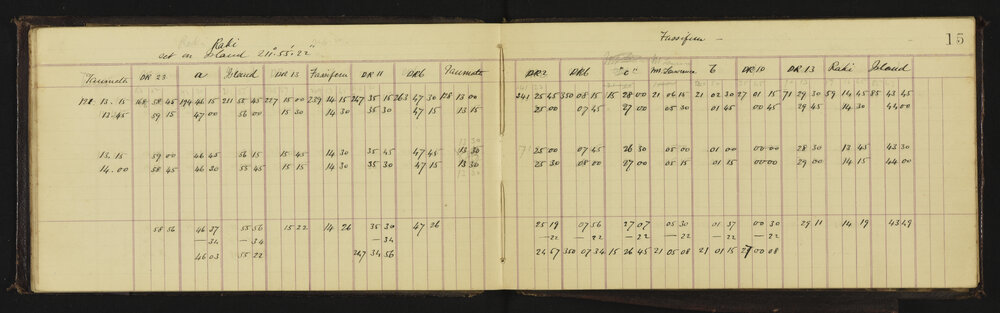 Raki
Set on Island 211° 55' 22"
DR 23 a Island DR 13 Fassifern DR 11 DR6
13.15 168 58 45 194 46 15 211 55 45 227 15 00 239 14 15 247 35 15 263 47 30 128 13 00
13.45 59 15 47 00 56 00 15 30 14 30 35 30 47 15 13 15
13.15 59 00 46 45 56 15 15 45 14 30 35 45 47 45 13 30
14.00 58 45 46 30 55 45 15 15 14 30 35 30 47 30 13 30
58 56 46 37 55 56 15 22 14 26 35 30 47 26
— 34 — 34 — 34
46 03 55 22 247 34 56
Fassifern
15
DR2 DR6 "C" DR 10 DR 13 Raki Island
241 25 45 350 08 15 15 28 00 21 06 15 21 02 30 27 01 15 71 29 30 59 14 45 85 43 45
25 00 07 45 27 00 05 30 01 45 00 45 29 45 14 30 44 00
25 00 07 45 26 30 05 00 01 00 00 00 28 30 13 45 43 30
25 30 08 00 27 00 05 15 01 15 00 00 29 00 14 15 44 00
25 19 07 56 27 07 05 30 01 37 00 30 29 11 14 19 43 49
— 22 — 22 — 22 — 22 — 22 — 22
24 57 350 07 34 15 26 45 21 05 08 21 01 15 27 00 08